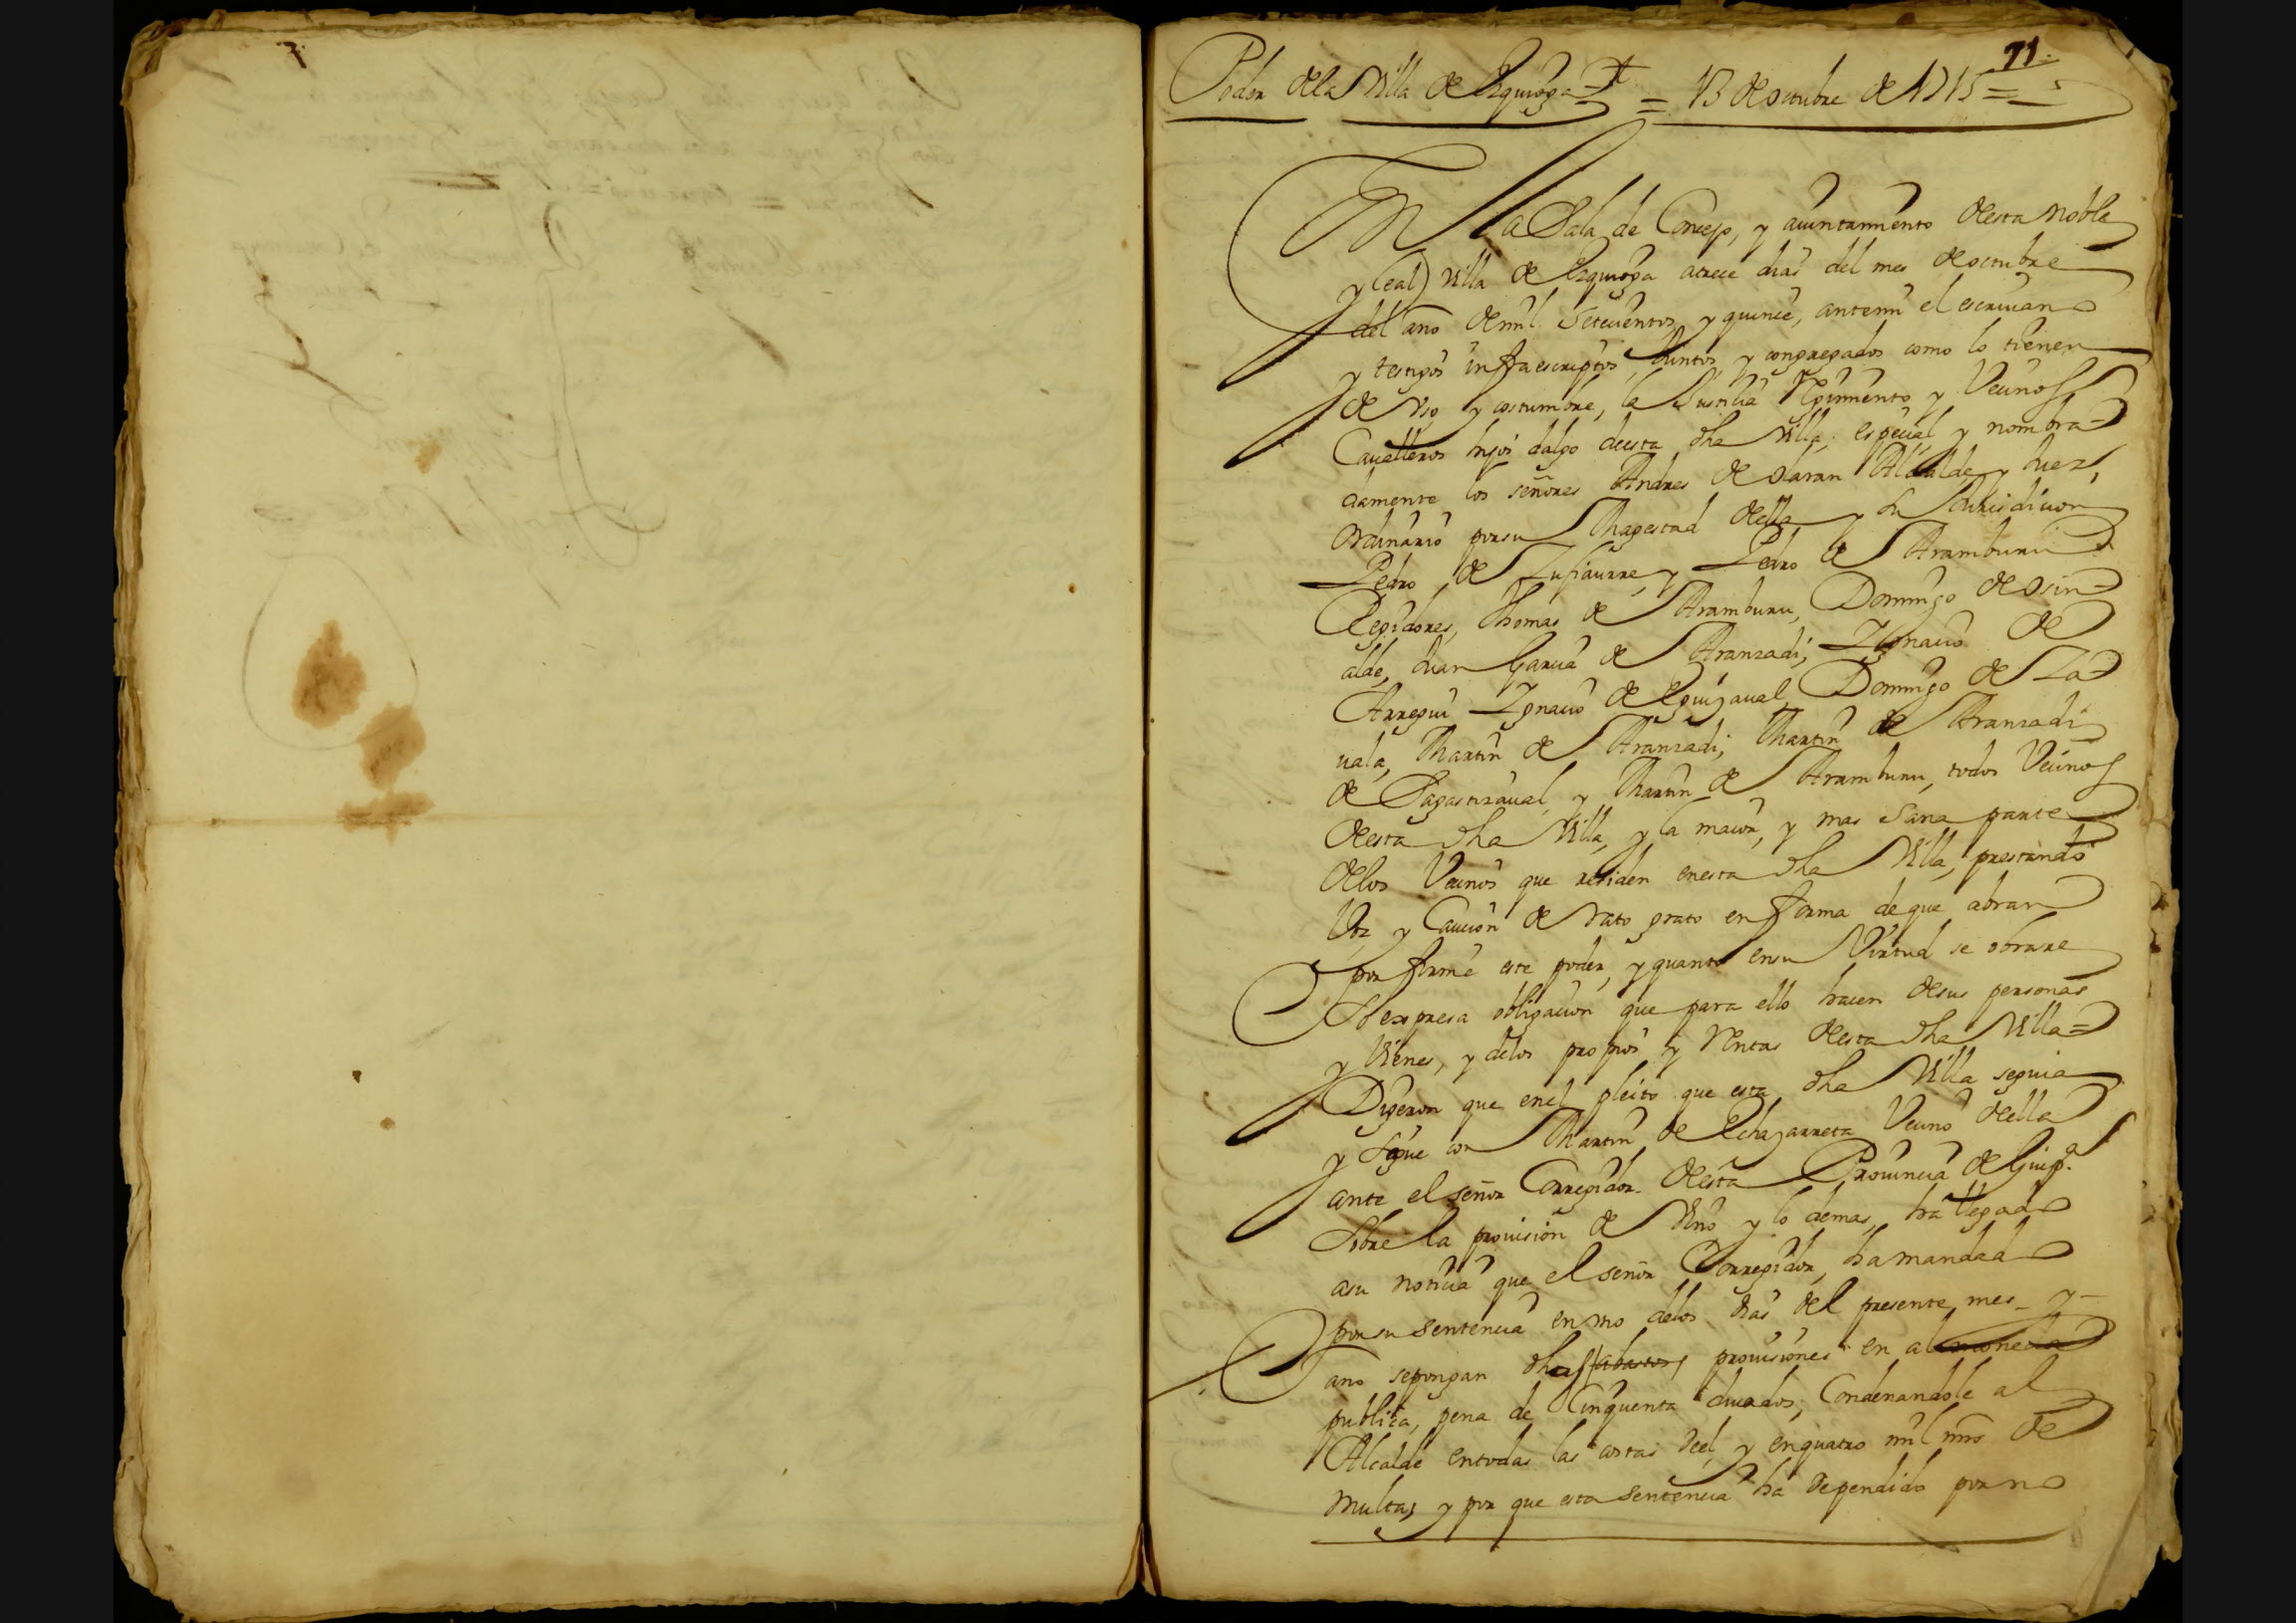 71.
Poder dela Villa de Ezquioga = 13 de octubre de 1715 =
En la Sala de Concejo, y aiuntamiento desta noble
y leal villa de Ezquioga a trece dias del mes de octubre
del año de mil setecientos y quince, antemi el escriuano
y testigos infraescriptos, Juntos, y congregados como lo tienen
de vso y costumbre, la Justicia Regimiento y Vecinos
Caualleros hijos dalgo deesta dha villa, especial y nombra=
damente los señores Andres de olaran Alcalde y Juez
ordinario porsu Magestad della y su Jurisdicion
Pedro de Zufiaurre, y Pedro de Aramburu
Regidores, Thomas de Aramburu, Domingo de osin=
alde, Juan Garcia de Aranzadi, Ygnacio de
Arregui Ygnacio de Eguizaual, Domingo de Za=
uala, Martin de Aranzadi, Martin de Aranzadi
de Sagastizaual, y Martin de Aramburu, todos Vecinos
desta dha Villa, y la maior, y mas sana parte
delos Vecinos que residen enesta dha Villa, prestando
Voz y Caucion de rato grato en forma deque abran
por firme este poder, y quanto ensu Virtud se obrare
So expresa obligacion que para ello hacen desus personas
y vienes, y delos propios y rentas desta dha Villa=
Digeron que enel pleito que esta dha Villa seguia
y Sigue con Martin de Echazarreta Vecino della
ante el señor Corregidor desta Prouincia de Guip.a
Sobre la prouision de Vino y lo demas, ha llegado
asu noticia que el señor Corregidor, ha mandado
porsu sentencia en vno delos dias del presente mes y
año sepongan dhas abastos provisiones en almoneda
publica, pena de Cinquenta ducados, Condenandole al
Alcalde entodas las costas del, y enquatro mil mrs de
multa, y por que esta sentencia ha dependido por no